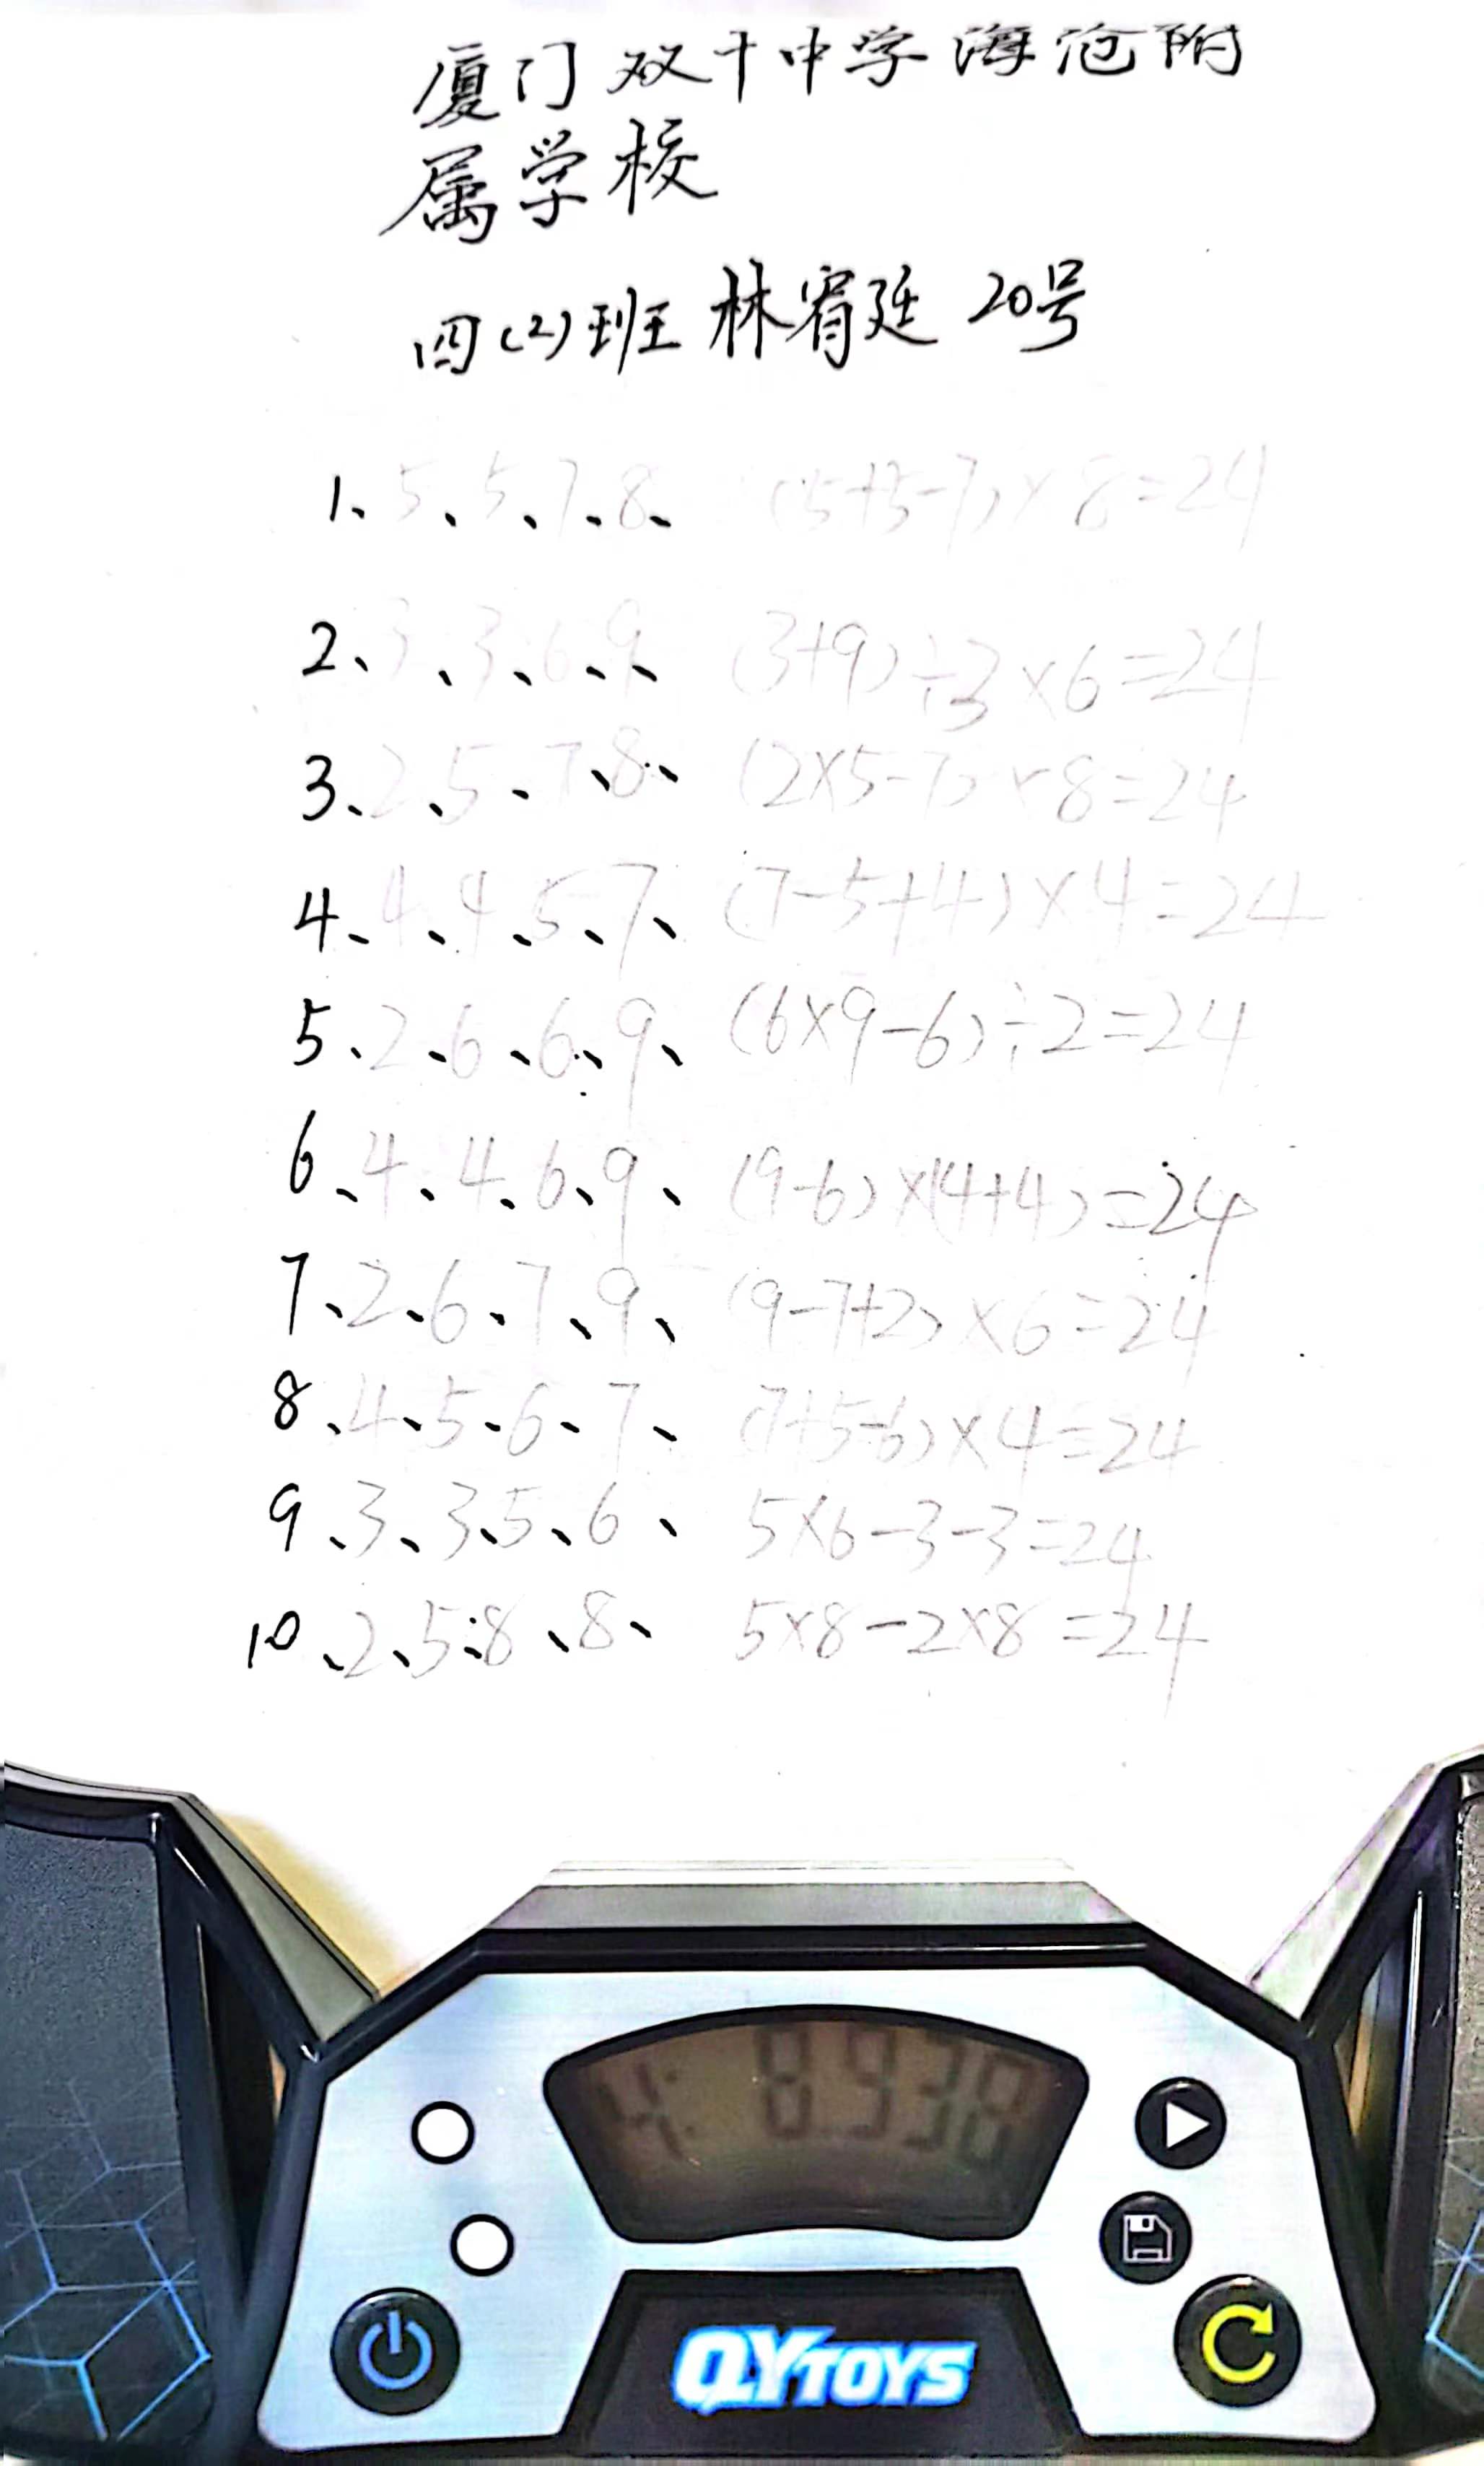 厦门双十中学海沧附
属学校
四(2)班 林宥廷 20号
1、5、5、7、8、 (5+5-7)×8=24
2、3、3、6、9、 (3+9)÷3×6=24
3、2、5、7、8、 (2×5-7)×8=24
4、4、4、5、7、 (7-5+4)×4=24
5、2、6、6、9、 (6×9-6)÷2=24
6、4、4、6、9、 (9-6)×(4+4)=24
7、2、6、7、9、 (9-7+2)×6=24
8、4、5、6、7、 (7+5-6)×4=24
9、3、3、5、6、 5×6-3-3=24
10、2、5、8、8、 5×8-2×8=24
4:8.938
QYTOYS